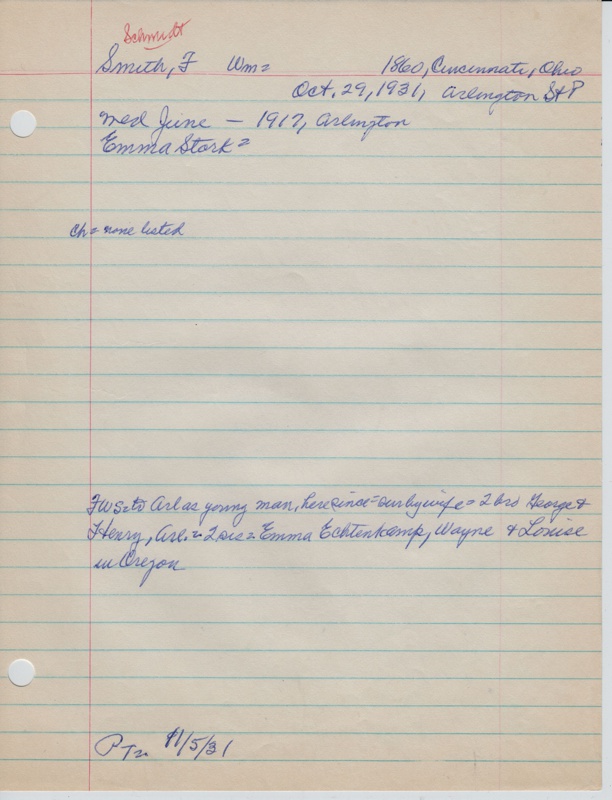 Schmidt
Smith, F Wm= 1860, Cincinnati, Ohio
Oct. 29, 1931, Arlington St P
med June — 1917, Arlington
Emma Stork=
ch= none listed
FWS=to Arl as young man, here since= sur by wife= 2 bro George &
Henry, Arl.= 2 sis= Emma Echtenkamp, Wayne & Louise
in Oregon
11/5/31